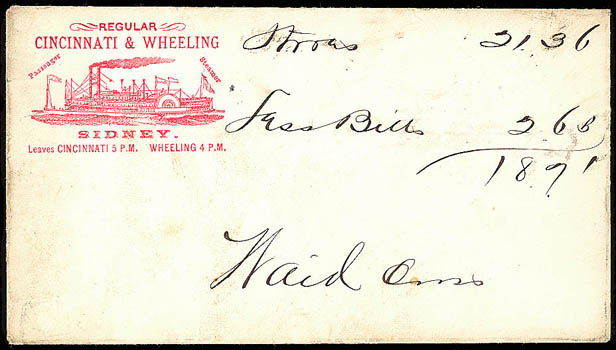 REGULAR
CINCINNATI & WHEELING
Passenger Steamer
SIDNEY.
Leaves CINCINNATI 5 P.M. WHEELING 4 P.M.
21.36
Less Bill 2 65
18.71